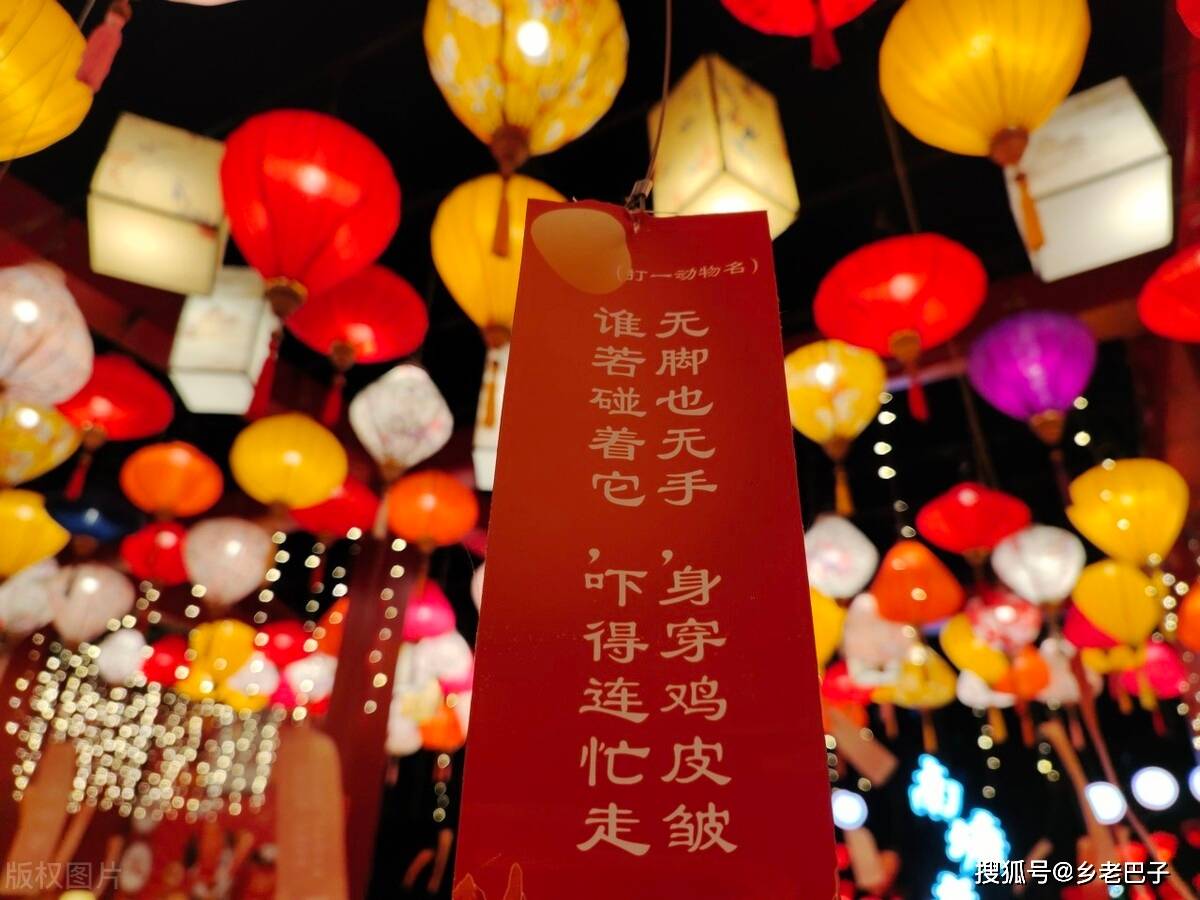 （打一动物名）
无脚也无手，身穿鸡皮皱
谁若碰着它，吓得连忙走
版权图片
搜狐号@乡老巴子